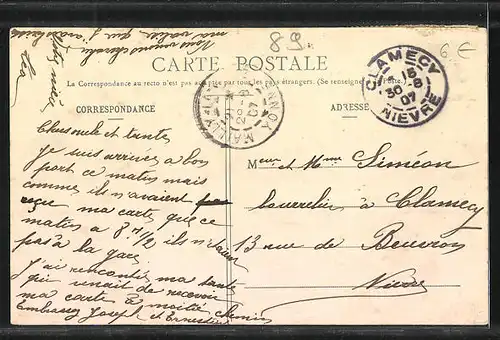 89.
6 €
CARTE POSTALE
La Correspondance au recto n'est pas acceptée par tous les pays étrangers. (Se renseigner à la Poste.)
CORRESPONDANCE
ADRESSE
MAILLY-LA-VILLE YONNE
07
CLAMECY
15
30 -8
07
NIEVRE
Cher oncle et tante
Je suis arrivée à bon
port ce matin mais
comme ils n'avaient pas
reçu ma carte que ce
matin à 8 h 1/2 ils n'étaient
pas à la gare
J'ai rencontré ma tante
qui venait de recevoir
ma carte à moitié chemin
Embrassez Joseph et Ernestine
Votre nièce
Léa
Nous irons chercher
ma valise que j'ai
Mr et Mme Siméon
à Clamecy
13 rue de Beuvron
Nièvre